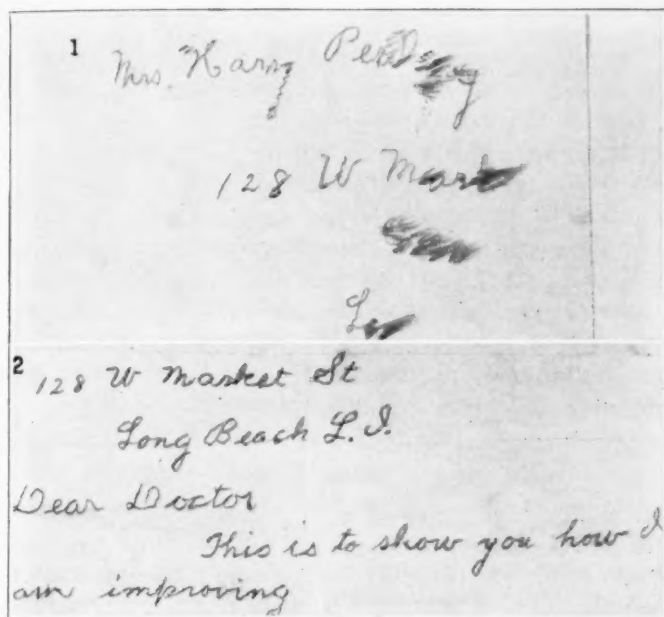 1
Mrs. Harry
128 W Mark
2
128 W Market St
Long Beach L. I.
Dear Doctor
This is to show you how I
am improving